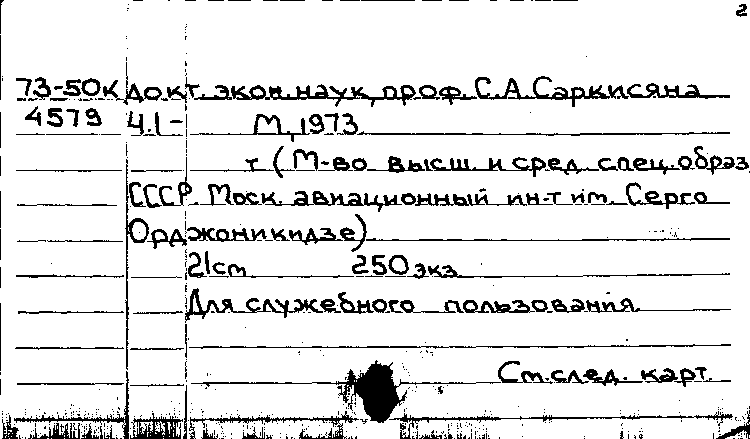 2
73-50К докт. экон. наук, проф. С.А. Саркисяна
4579 Ч.1- М., 1973
т (М-во высш. и сред. спец. образ.
СССР. Моск. авиационный ин-т им. Серго
Орджоникидзе)
21см 250 экз.
Для служебного пользования.
См. след. карт.